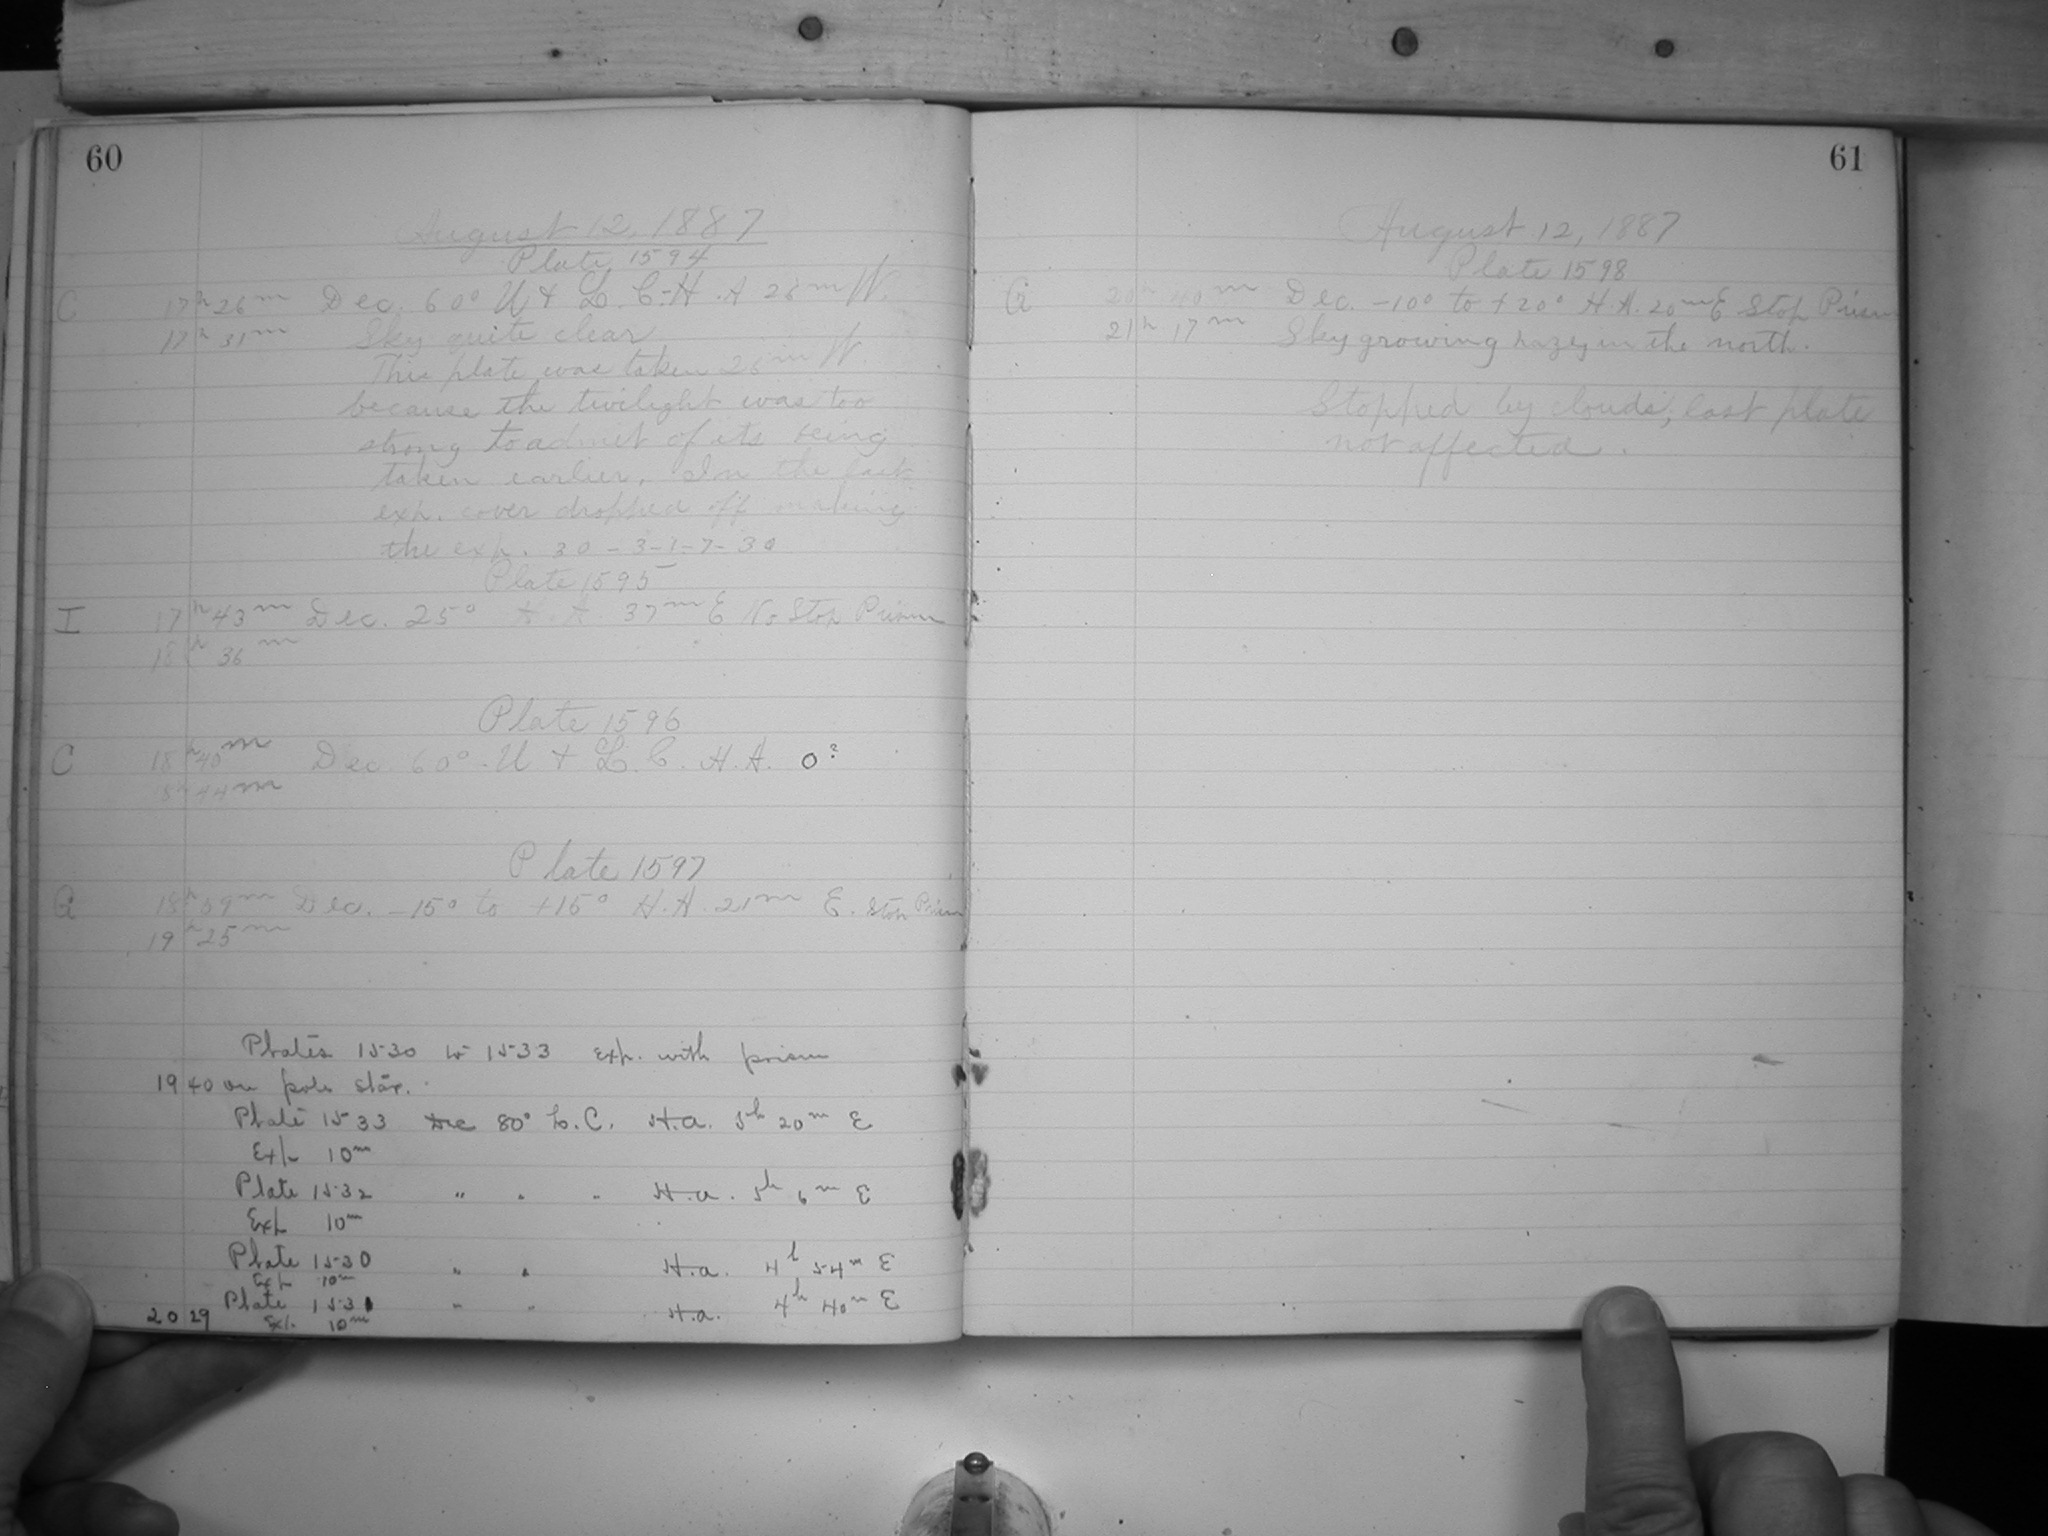 60
August 12, 1887
Plate 1594
C 17h 26m Dec. 60° U & L. C. H. A 26m W.
17h 31m Sky quite clear
This plate was taken 26m W
because the twilight was too
strong to admit of its being
taken earlier, In the last
exp. cover dropped off making
the exp. 30-3-1-7-30
Plate 1595
I 17h 43m Dec. 25° H. A. 37m E No Stop Prism
18h 36m
Plate 1596
C 18h 40m Dec 60° U & L. C. H. A. 0?
18h 44m
Plate 1597
G 18h 59m Dec. -15° to +15° H. A. 21m E. Stop Prism
19h 25m
Plates 1530 to 1533 exp. with prism
19 40 on pole star.
Plate 1533 Dec 80° L. C. H.a. 5h 20m E
Exp 10m
Plate 1532 " " " H.a. 5h 6m E
Exp 10m
Plate 1530 " " H.a. 4h 54m E
Exp 10m
Plate 1531 " " H.a. 4h 40m E
20 29 Ex. 10m
61
August 12, 1887
Plate 1598
G 20h 40m Dec. -10° to +20° H. A. 20m E Stop Prism
21h 17m Sky growing hazy in the north.
Stopped by clouds, last plate
not affected.